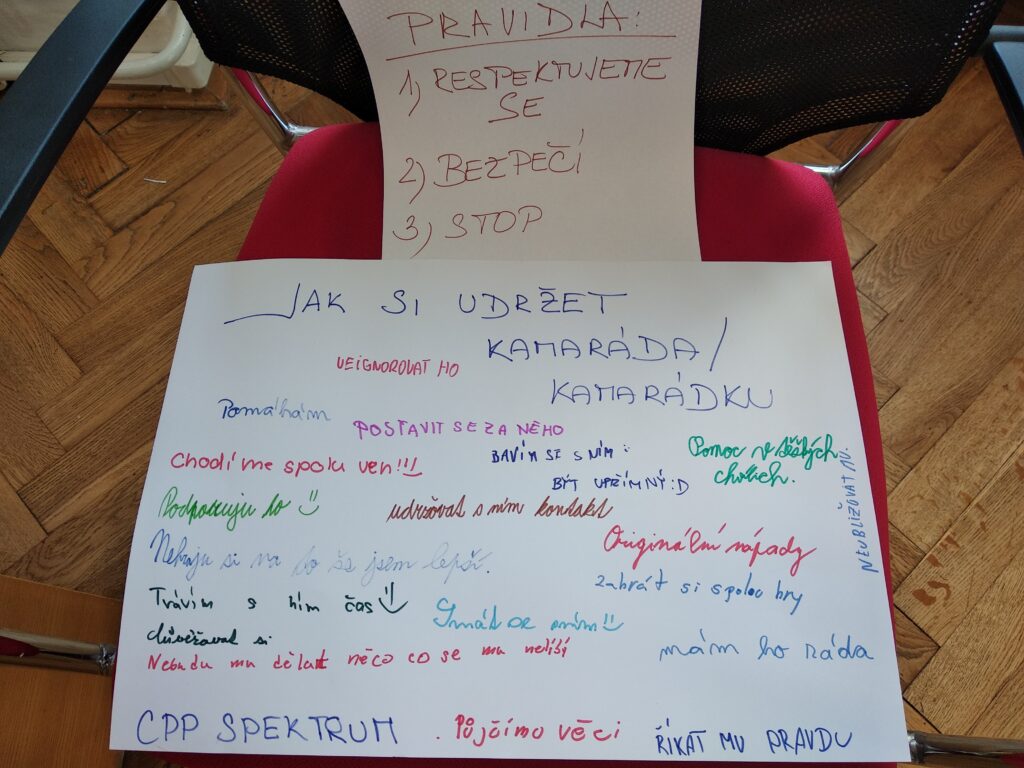 PRAVIDLA:
1) RESPEKTUJEME
SE
2) BEZPEČÍ
3) STOP
JAK SI UDRŽET
KAMARÁDA/
KAMARÁDKU
NEIGNOROVAT HO
Pomáhám
POSTAVIT SE ZA NĚHO
Chodíme spolu ven!!!
BAVÍM SE S NÍM :
BÝT UPŘÍMNÝ :D
Pomoc v těžkých
chvílích.
NEUBLIŽOVAT MU.
Podporuju ho :)
udržovat s ním kontakt
Nehraju si na to že jsem lepší.
Originální nápady
zahrát si spolou hry
Trávím s ním čas :)
Smát se s ním :)
důvěřovat si
Nebudu mu dělat něco co se mu nelíbí
mám ho ráda
CPP SPEKTRUM
. Půjčímu věci
ŘÍKAT MU PRAVDU